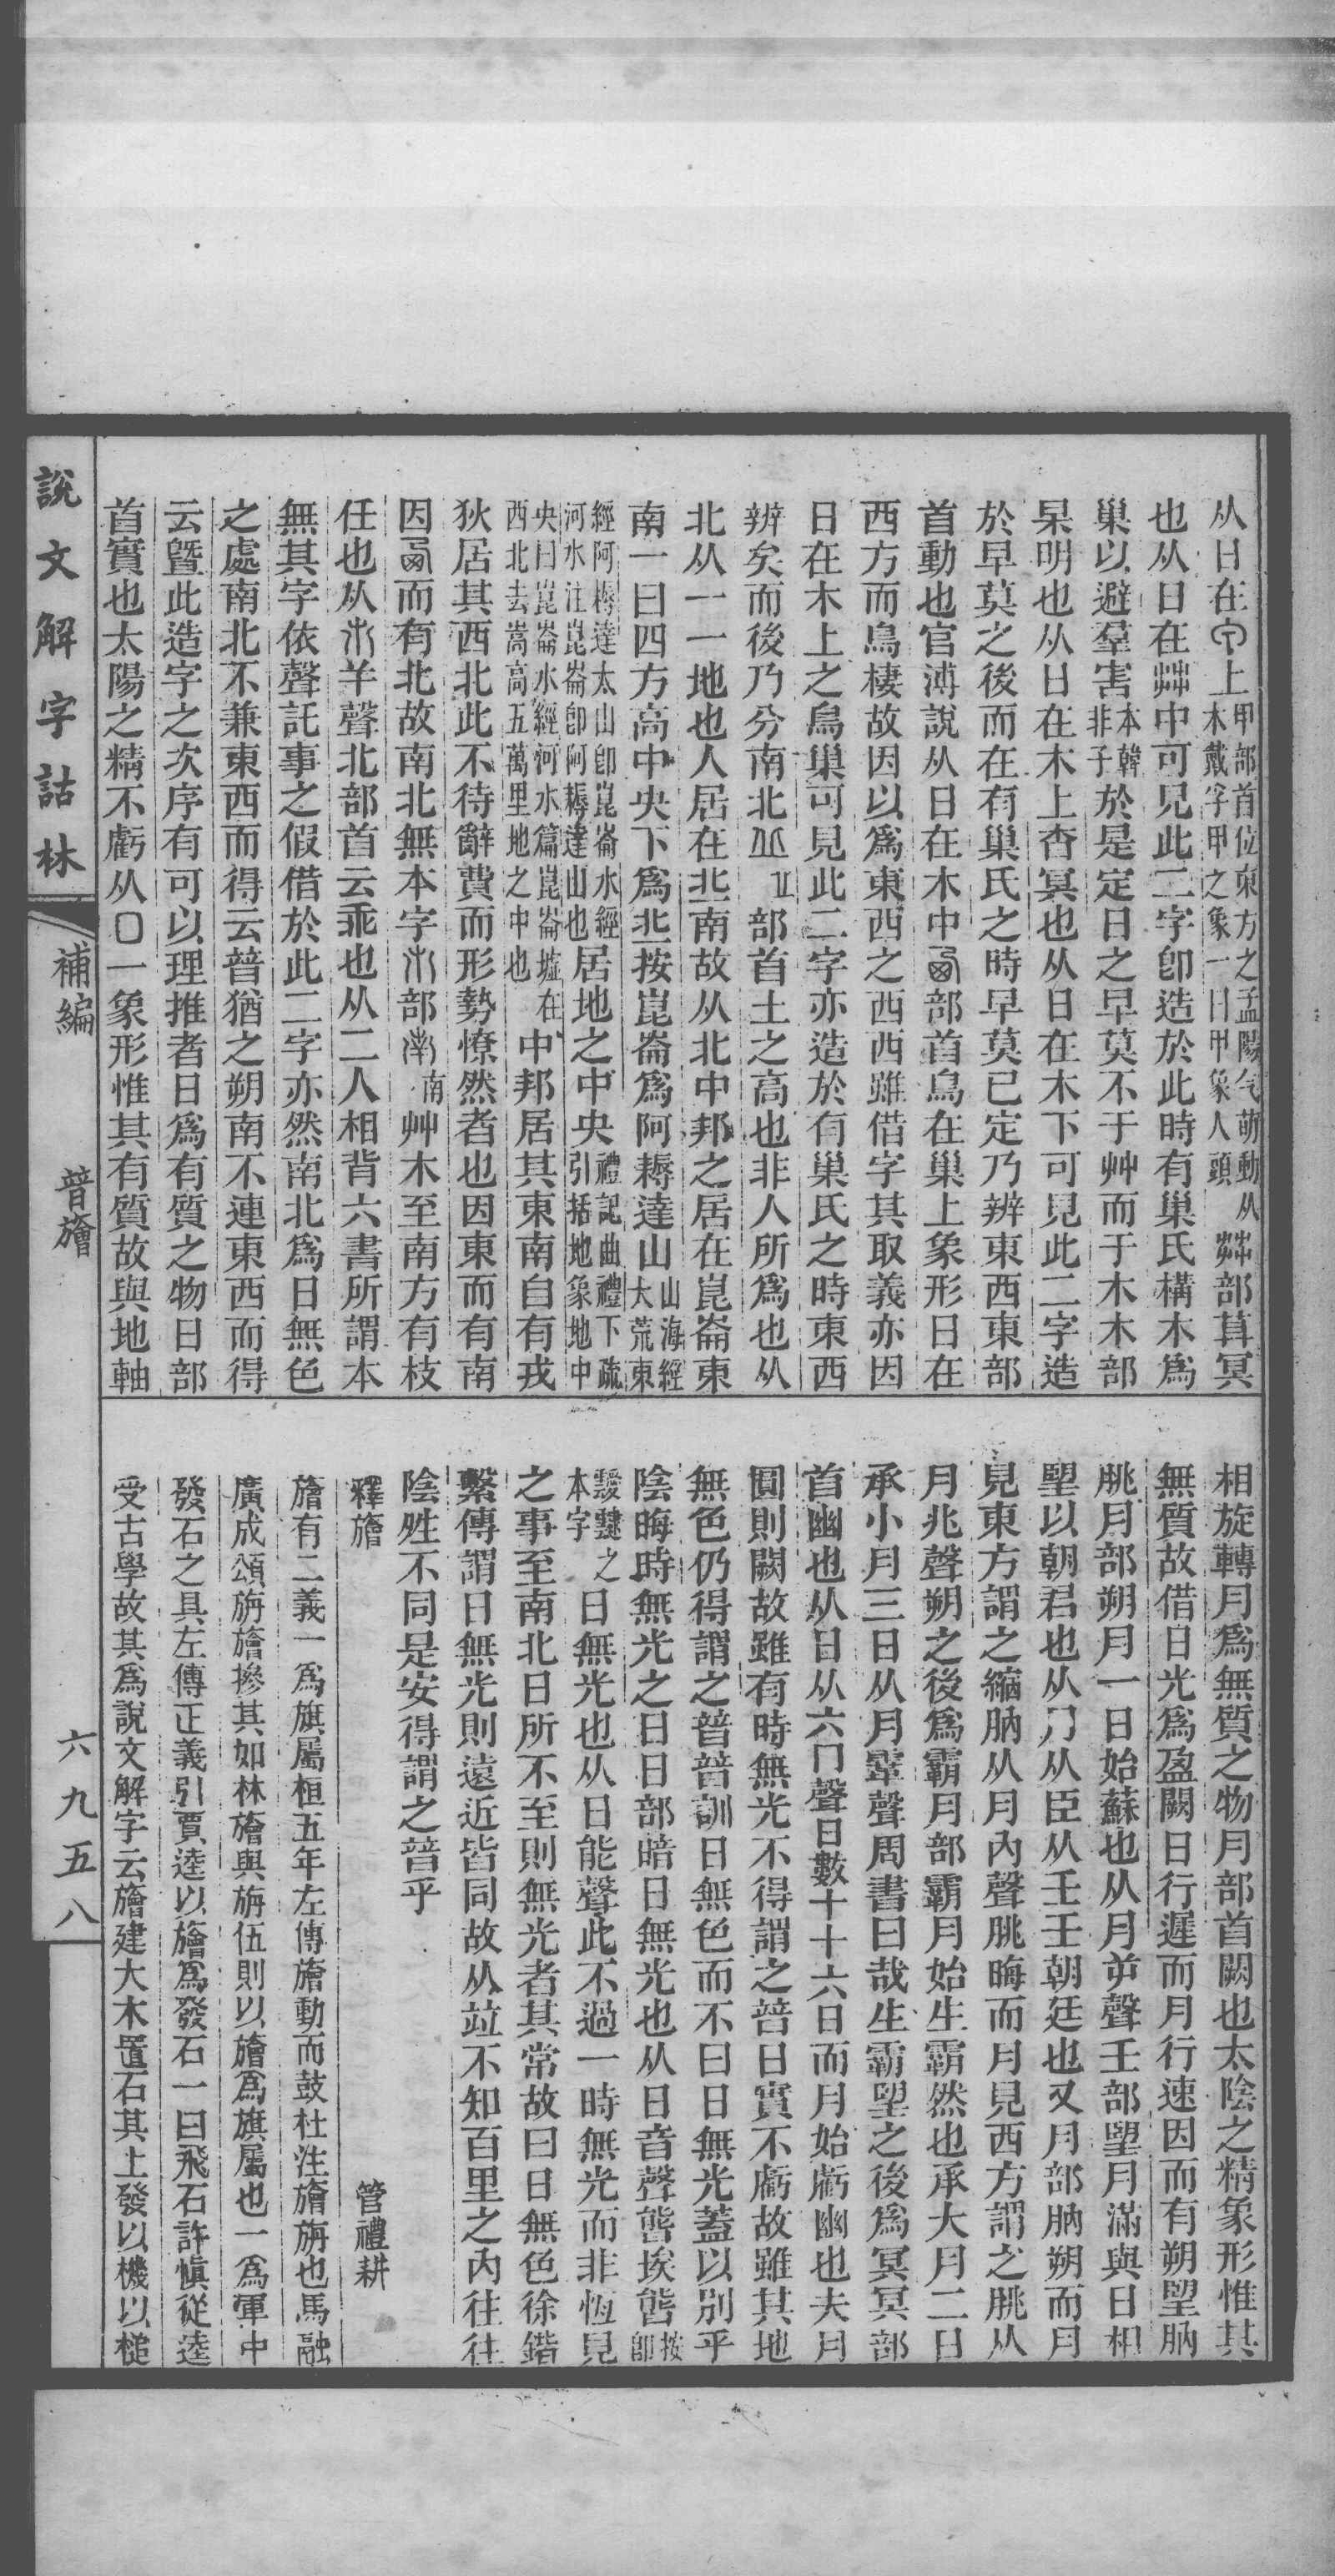 从日在𠇚上甲部首位東方之孟陽气萌動从木戴孚甲之象一曰甲象人頭茻部莫冥
也从日在茻中可見此二字卽造於此時有巢氏構木爲
巢以避羣害本韓非子於是定日之早莫不于艸而于木木部
杲明也从日在木上杳冥也从日在木下可見此二字造
於早莫之後而在有巢氏之時早莫已定乃辨東西東部
首動也官溥說从日在木中部首鳥在巢上象形日在
西方而鳥棲故因以爲東西之西西雖借字其取義亦因
日在木上之鳥巢可見此二字亦造於有巢氏之時東西
辨矣而後乃分南北丠丘部首土之高也非人所爲也从
北从一一地也人居在丠南故从北中邦之居在崑崙東
南一曰四方高中央下爲丠按崑崙爲阿耨達山山海經大荒東
經阿耨達太山卽崑崙水經河水注崑崙卽阿耨達山也居地之中央禮記曲禮下疏引括地象地中
央曰崑崙水經河水篇崑崙墟在西北去嵩高五萬里地之中也中邦居其東南自有戎
狄居其西北此不待辭費而形勢憭然者也因東而有南
因而有北故南北無本字部南艸木至南方有枝
任也从羊聲北部首云乖也从二人相背六書所謂本
無其字依聲託事之假借於此二字亦然南北爲日無色
之處南北不兼東西而得云暜猶之朔南不連東西而得
云曁此造字之次序有可以理推者日爲有質之物日部
首實也太陽之精不虧从囗一象形惟其有質故與地軸
相旋轉月爲無質之物月部首闕也太陰之精象形惟其
無質故借日光爲盈闕日行遲而月行速因而有朔朢朒
朓月部朔月一日始蘇也从月屰聲壬部朢月滿與日相
朢以朝君也从月从臣从壬壬朝廷也又月部朒朔而月
見東方謂之縮朒从月內聲朓晦而月見西方謂之朓从
月兆聲朔之後爲霸月部霸月始生霸然也承大月二日
承小月三日从月䨣聲周書曰哉生霸朢之後爲冥冥部
首幽也从日从六冂聲日數十十六日而月始虧幽也夫月
圓則闕故雖有時無光不得謂之暜日實不虧故雖其地
無色仍得謂之暜暜訓日無色而不曰日無光蓋以別乎
陰晦時無光之日日部暗日無光也从日音聲㬒埃㬒按卽
靉靆之本字日無光也从日能聲此不過一時無光而非恆見
之事至南北日所不至則無光者其常故曰日無色徐鍇
繫傳謂日無光則遠近皆同故从竝不知百里之內往往
陰甠不同是安得謂之暜乎
釋旝　管禮耕
旝有二義一爲旗屬桓五年左傳旝動而鼓杜注旝旃也馬融
廣成頌旃旝摻其如林旝與旃伍則以旝爲旗屬也一爲軍中
發石之具左傳正義引賈逵以旝爲發石一曰飛石許愼從逵
受古學故其爲說文解字云旝建大木置石其上發以機以槌
說文解字詁林
補編
暜旝
六九五八